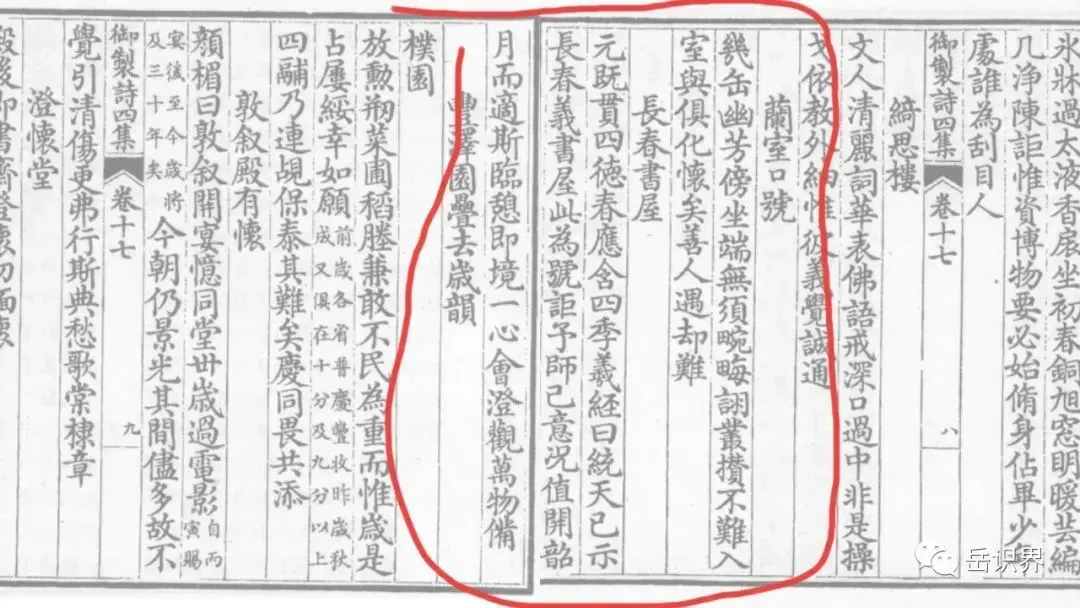 牀過太液香扆坐初春銅旭窓明暖芸編
几淨陳詎惟資博物要必始脩身佔畢少
處誰為刮目人
御製詩四集 卷十七 八
綺思樓
文人清麗詞華表佛語戒深口過中非是操
戈依教外細惟彼義覺誠通
蘭室口號
幾缶幽芳傍坐端無須畹畮詡叢攢不難入
室與俱化懷矣善人遇却難
長春書屋
元既貫四德春應含四季羲經曰統天已示
長春義書屋此為號詎予師己意況值開韶
月而適斯臨憩即境一心會澄觀萬物備
豐澤園疊去歲韻
樸園
放勳剏菜圃稻塍兼敢不民為重而惟歲是
占屢綏幸如願前歲各省普慶豐收昨歲秋
成又俱在十分及九分以上
四鬴乃連覘保泰其難矣慶同畏共添
敦叙殿有懷
顔楣曰敦叙開宴憶同堂丗歲過電影自丙
寅賜
宴後至今歲將
及三十年矣今朝仍景光其間儘多故不
御製詩四集 卷十七 九
覺引清傷更弗行斯典愁歌棠棣章
澄懷堂
岳识界